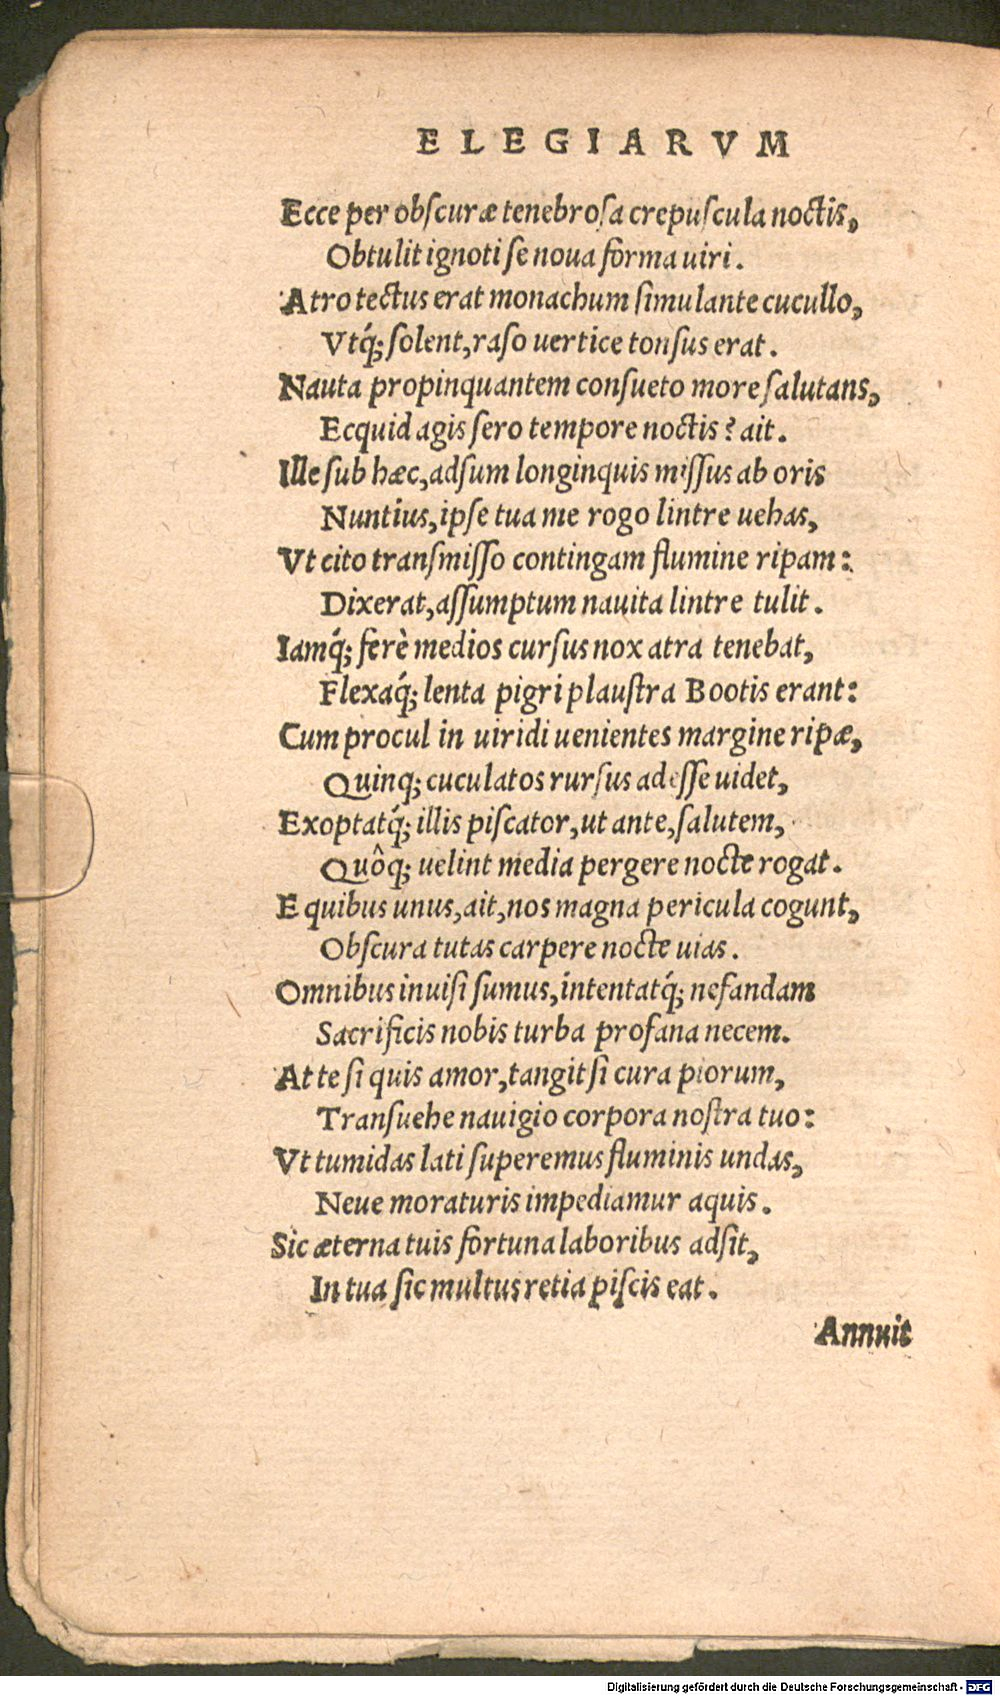 ELEGIARVM
Ecce per obscuræ tenebrosa crepuscula noctis,
Obtulit ignoti se noua forma uiri.
Atro tectus erat monachum simulante cucullo,
Vtq́; solent, raso uertice tonsus erat.
Nauta propinquantem consueto more salutans,
Ecquid agis sero tempore noctis? ait.
Ille sub hæc, adsum longinquis missus ab oris
Nuntius, ipse tua me rogo lintre uehas,
Vt cito transmisso contingam flumine ripam:
Dixerat, assumptum nauita lintre tulit.
Iamq́; ferè medios cursus nox atra tenebat,
Flexaq́; lenta pigri plaustra Bootis erant:
Cum procul in uiridi uenientes margine ripæ,
Quinq; cuculatos rursus adesse uidet,
Exoptatq́; illis piscator, ut ante, salutem,
Quôq; uelint media pergere nocte rogat.
E quibus unus, ait, nos magna pericula cogunt,
Obscura tutas carpere nocte uias.
Omnibus inuisi sumus, intentatq́; nefandam
Sacrificis nobis turba profana necem.
At te si quis amor, tangit si cura piorum,
Transuehe nauigio corpora nostra tuo:
Vt tumidas lati superemus fluminis undas,
Neue moraturis impediamur aquis.
Sic æterna tuis fortuna laboribus adsit,
In tua sic multus retia piscis eat.
Annuit
Digitalisierung gefördert durch die Deutsche Forschungsgemeinschaft - DFG